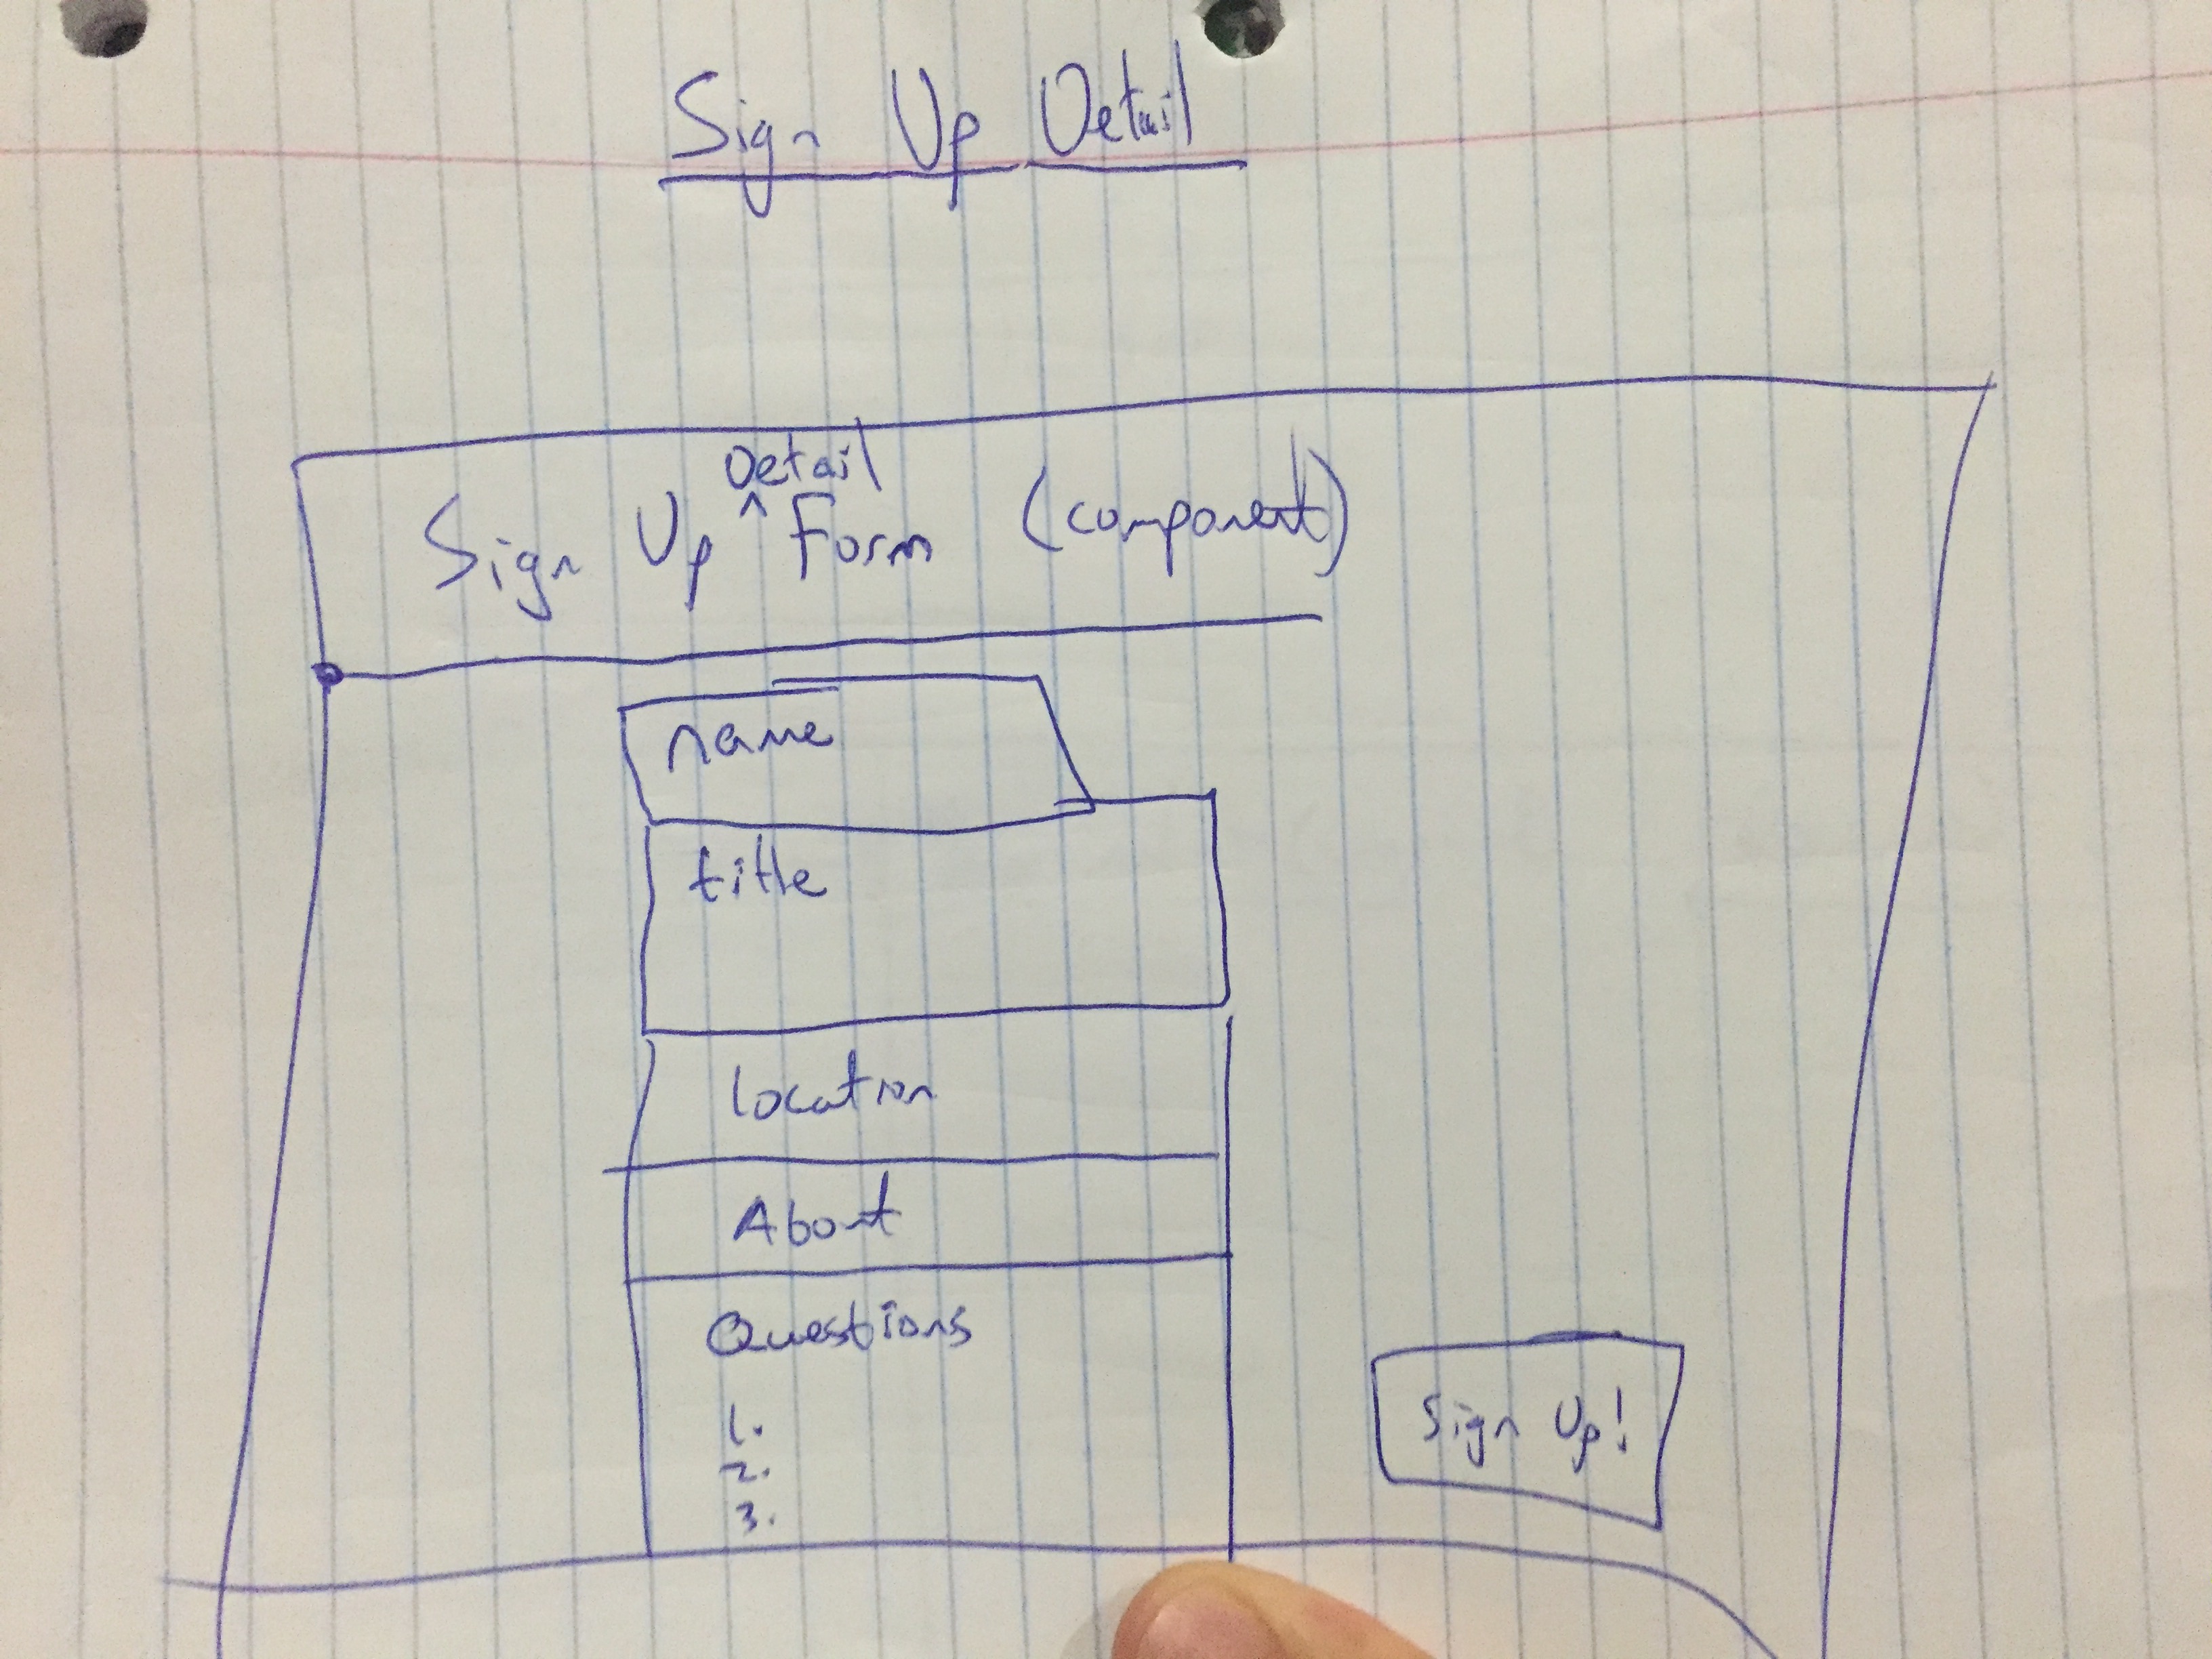 Sign Up Detail
Sign Up Detail Form (component)
name
title
location
About
Questions
1.
2.
3.
Sign Up!